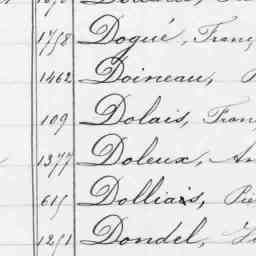 1758 Dogué, Franç
1462 Doineau,
109 Dolais, Fran
1377 Doleux, An
615 Dolliais, Pie
1251 Dondel,